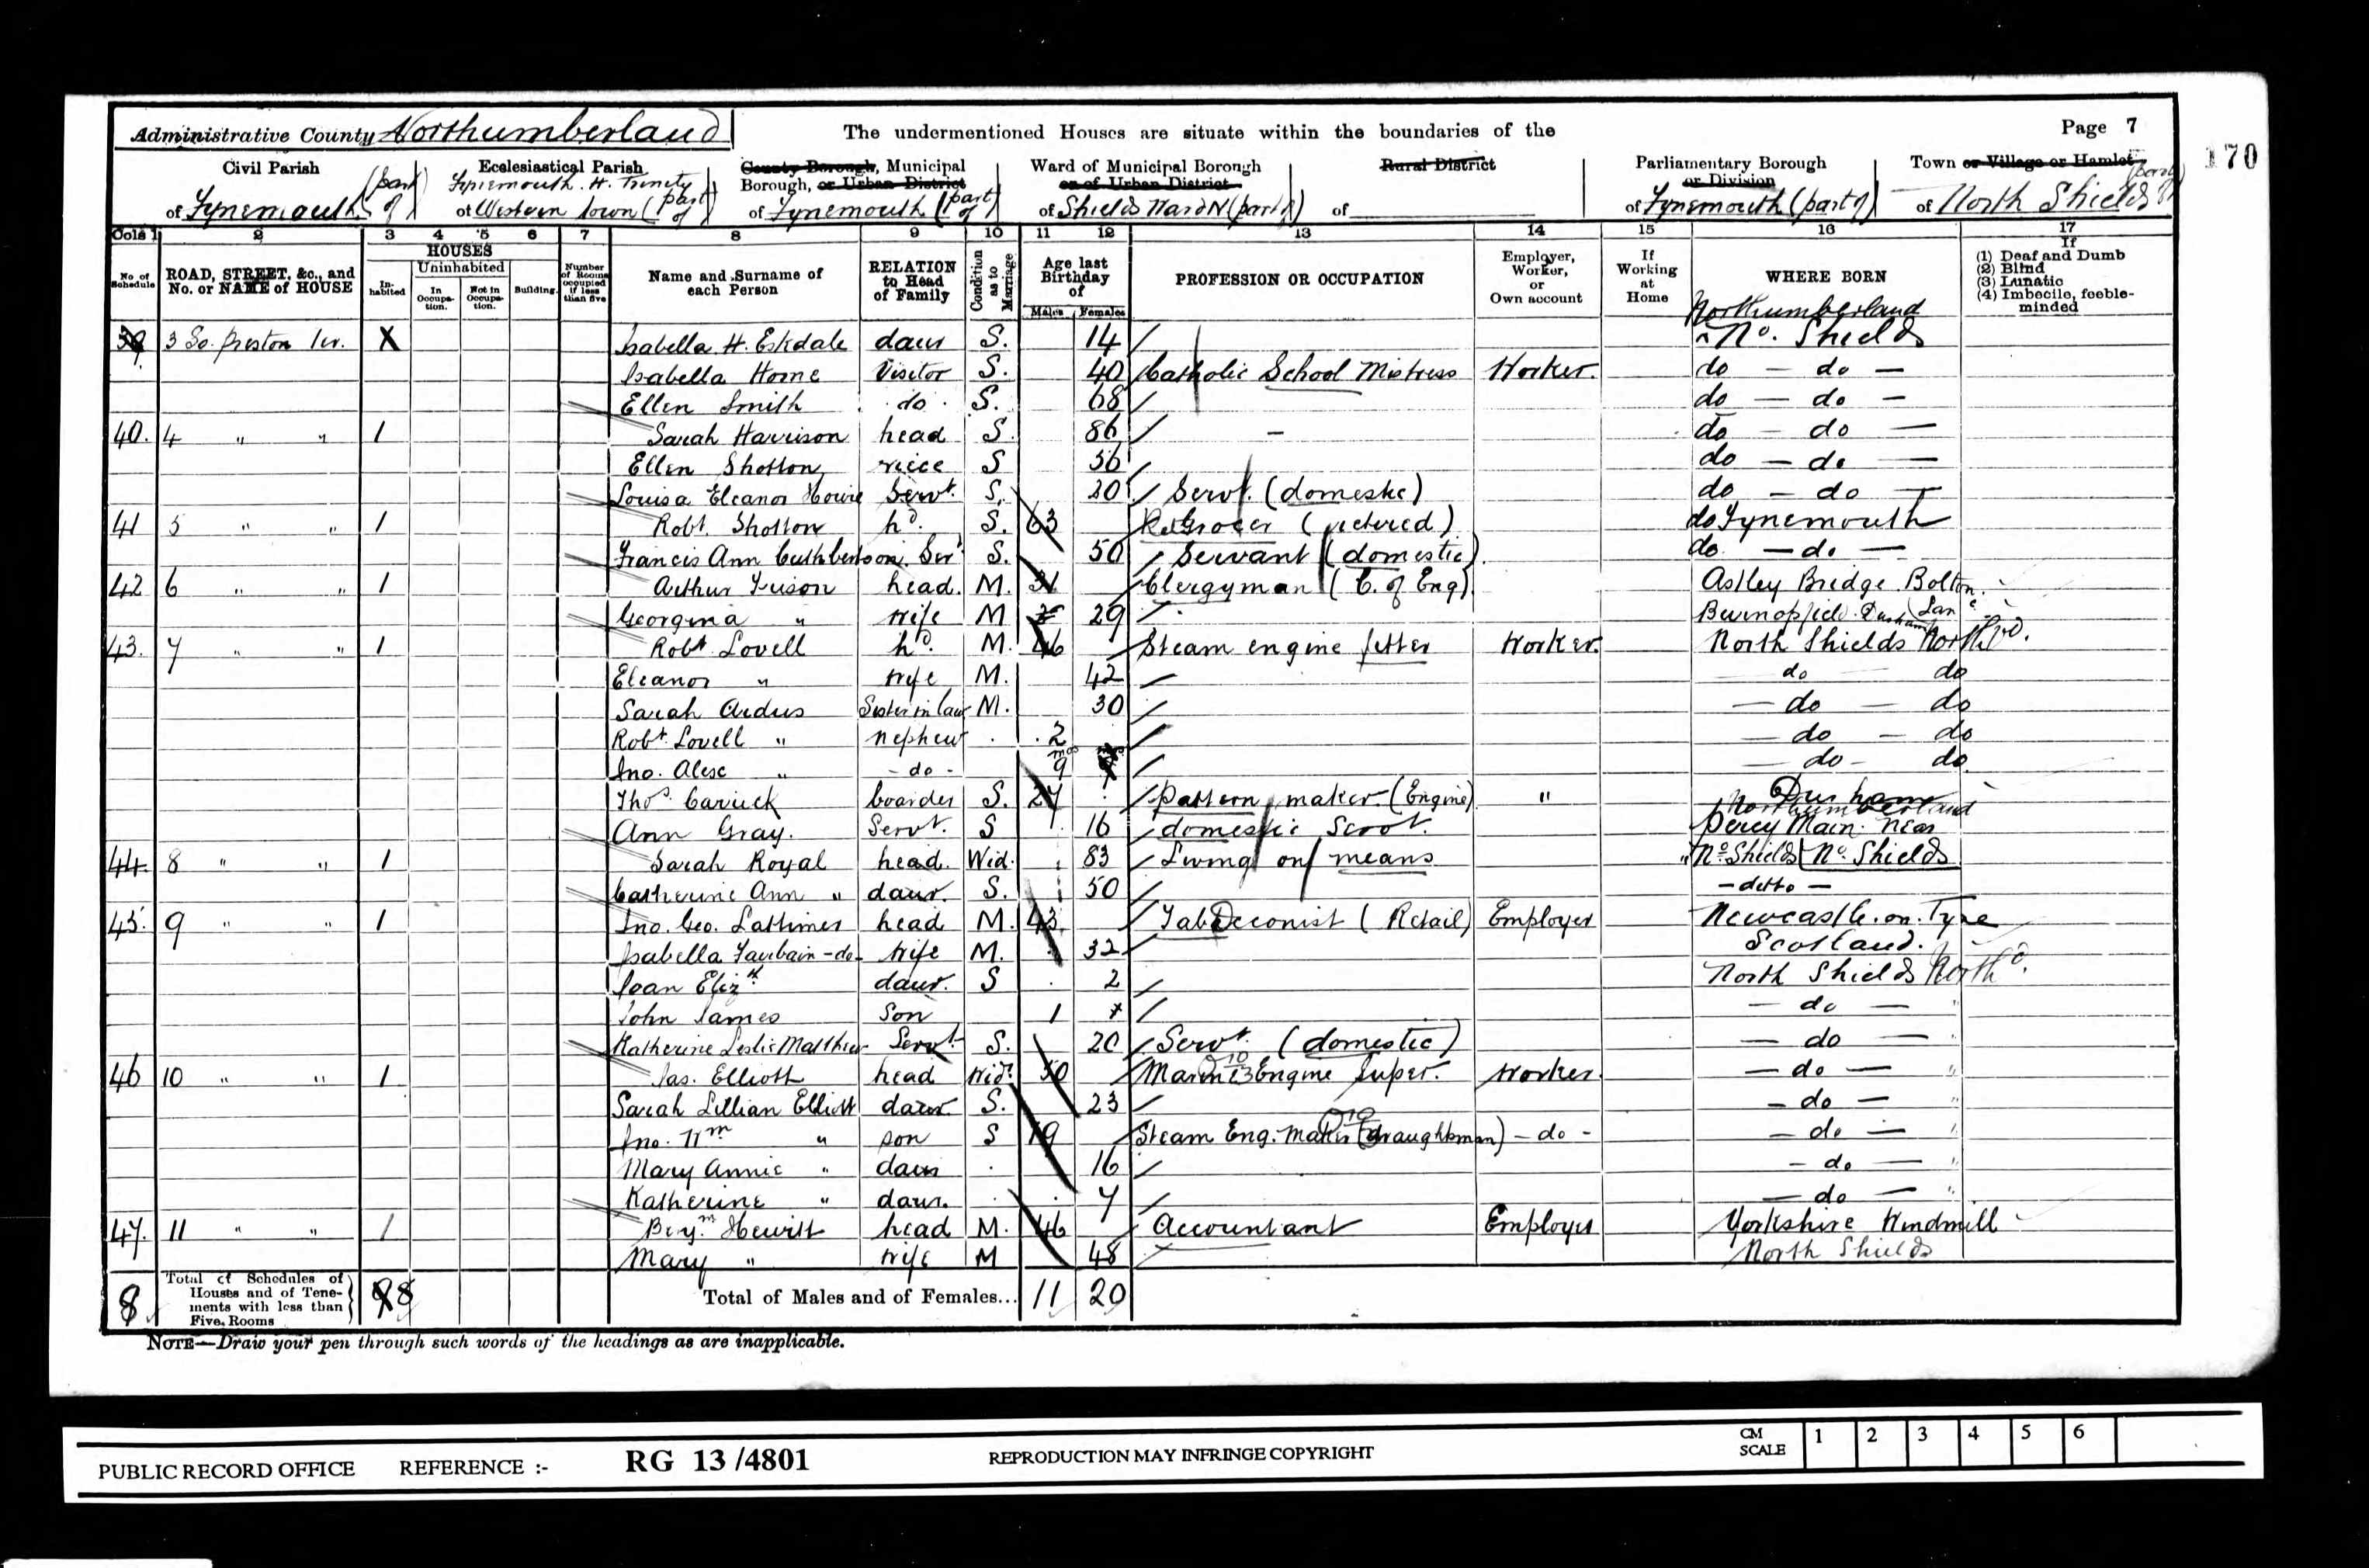 Administrative County Northumberland The undermentioned Houses are situate within the boundaries of the Page 7
170
Civil Parish Ecclesiastical Parish County Borough, Municipal Borough, or Urban District Ward of Municipal Borough or of Urban District Rural District Parliamentary Borough or Division Town or Village or Hamlet
of Tynemouth (part of) Tynemouth H. Trinity of Western Town (part of) of Tynemouth (part of) of Shields Ward N (part of) of of Tynemouth (part of) of North Shields (part of)
Cols 1 2 3 4 5 6 7 8 9 10 11 12 13 14 15 16 17
No. of Schedule ROAD, STREET, &c., and No. or NAME of HOUSE HOUSES Inhabited Uninhabited In Occupation. Not in Occupation. Building. Number of Rooms occupied if less than five Name and Surname of each Person RELATION to Head of Family Condition as to Marriage Age last Birthday of Males Females PROFESSION OR OCCUPATION Employer, Worker, or Own account If Working at Home WHERE BORN If (1) Deaf and Dumb (2) Blind (3) Lunatic (4) Imbecile, feeble-minded
39 3 So. Preston Ter. X Isabella H. Eskdale daur S. 14 Northumberland No. Shields
Isabella Horne Visitor S. 40 Catholic School Mistress Worker. do — do —
Ellen Smith do S. 68 do — do —
40. 4 " " 1 Sarah Harrison head S. 86 — do — do —
Ellen Shotton niece S 56 do — do —
Louisa Eleanor Howie Servt. S. 20 Servt. (domestic) do — do —
41 5 " " 1 Robt. Shotton hd. S. 63 Grocer (retired) do Tynemouth
Francis Ann Cuthbertson Ser S. 50 Servant (domestic) do — do —
42 6 " " 1 Arthur Frison head. M. 31 Clergyman (C. of Eng) Astley Bridge. Bolton. Lanc
Georgina " wife M 29 Burnopfield. Durham
43. 7 " " 1 Robt. Lovell hd. M. 46 Steam engine fitter Worker. North Shields Northd.
Eleanor " wife M. 42 do do
Sarah Ardus Sister in law M. 30 — do — do
Robt. Lovell " nephew 2 — do — do
Jno. Alex " - do - 9 mos — do - do
Thos. Carrick boarder S. 27 pattern maker. (Engine) " Durham
Ann Gray. Servt. S 16 domestic Servt. Northumberland Percy Main near No. Shields
44. 8 " " 1 Sarah Royal head. Wid. 83 Living on means " No. Shields
Catherine Ann " daur. S. 50 — ditto —
45. 9 " " 1 Jno. Geo. Lattimer head M. 43 Tabacconist (Retail) Employer Newcastle. on. Tyne
Isabella Fairbain - do - wife M. 32 Scotland.
Joan Elizth. daur. S 2 North Shields Northd.
John James Son 1 — do —
Katherine Leslie Matthew Servt. S. 20 Servt. (domestic) — do —
46 10 " " 1 Jas. Elliott head Widr. 50 Marine Engine Super. Worker. — do — "
Sarah Lillian Elliott daur. S. 23 — do — "
Jno. Wm " son S 19 Steam Eng. Maker (draughtsman) - do - — do — "
Mary Annie " daur 16 — do — "
Katherine " daur. 7 — do — "
47. 11 " " 1 Benjm. Hewitt head M. 46 Accountant Employer Yorkshire Windmill
Mary " wife M 48 North Shields
8 Total of Schedules of Houses and of Tenements with less than Five Rooms 8 Total of Males and of Females... 11 20
NOTE—Draw your pen through such words of the headings as are inapplicable.
PUBLIC RECORD OFFICE REFERENCE :- RG 13 /4801 REPRODUCTION MAY INFRINGE COPYRIGHT CM SCALE 1 2 3 4 5 6